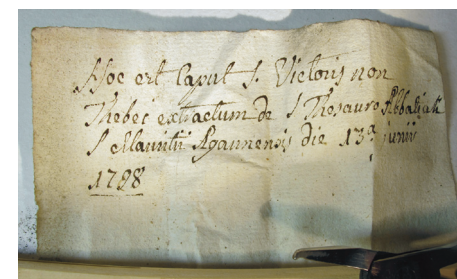 Hoc est Caput S. Victoris non
Thebei extractum de S Thesauro Abbatiali
S Mauritii Agaunensis die 13ª junii
1798